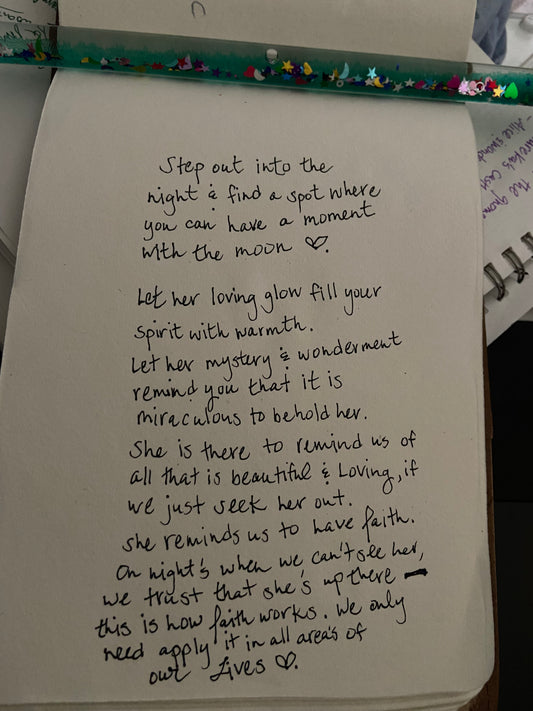 Step out into the
night & find a spot where
you can have a moment
with the moon ♡.
Let her loving glow fill your
spirit with warmth.
Let her mystery & wonderment
remind you that it is
miraculous to behold her.
She is there to remind us of
all that is beautiful & Loving, if
we just seek her out.
she reminds us to have faith.
On night's when we can't see her,
we trust that she's up there —
this is how faith works. We only
need apply it in all area's of
our Lives ♡.